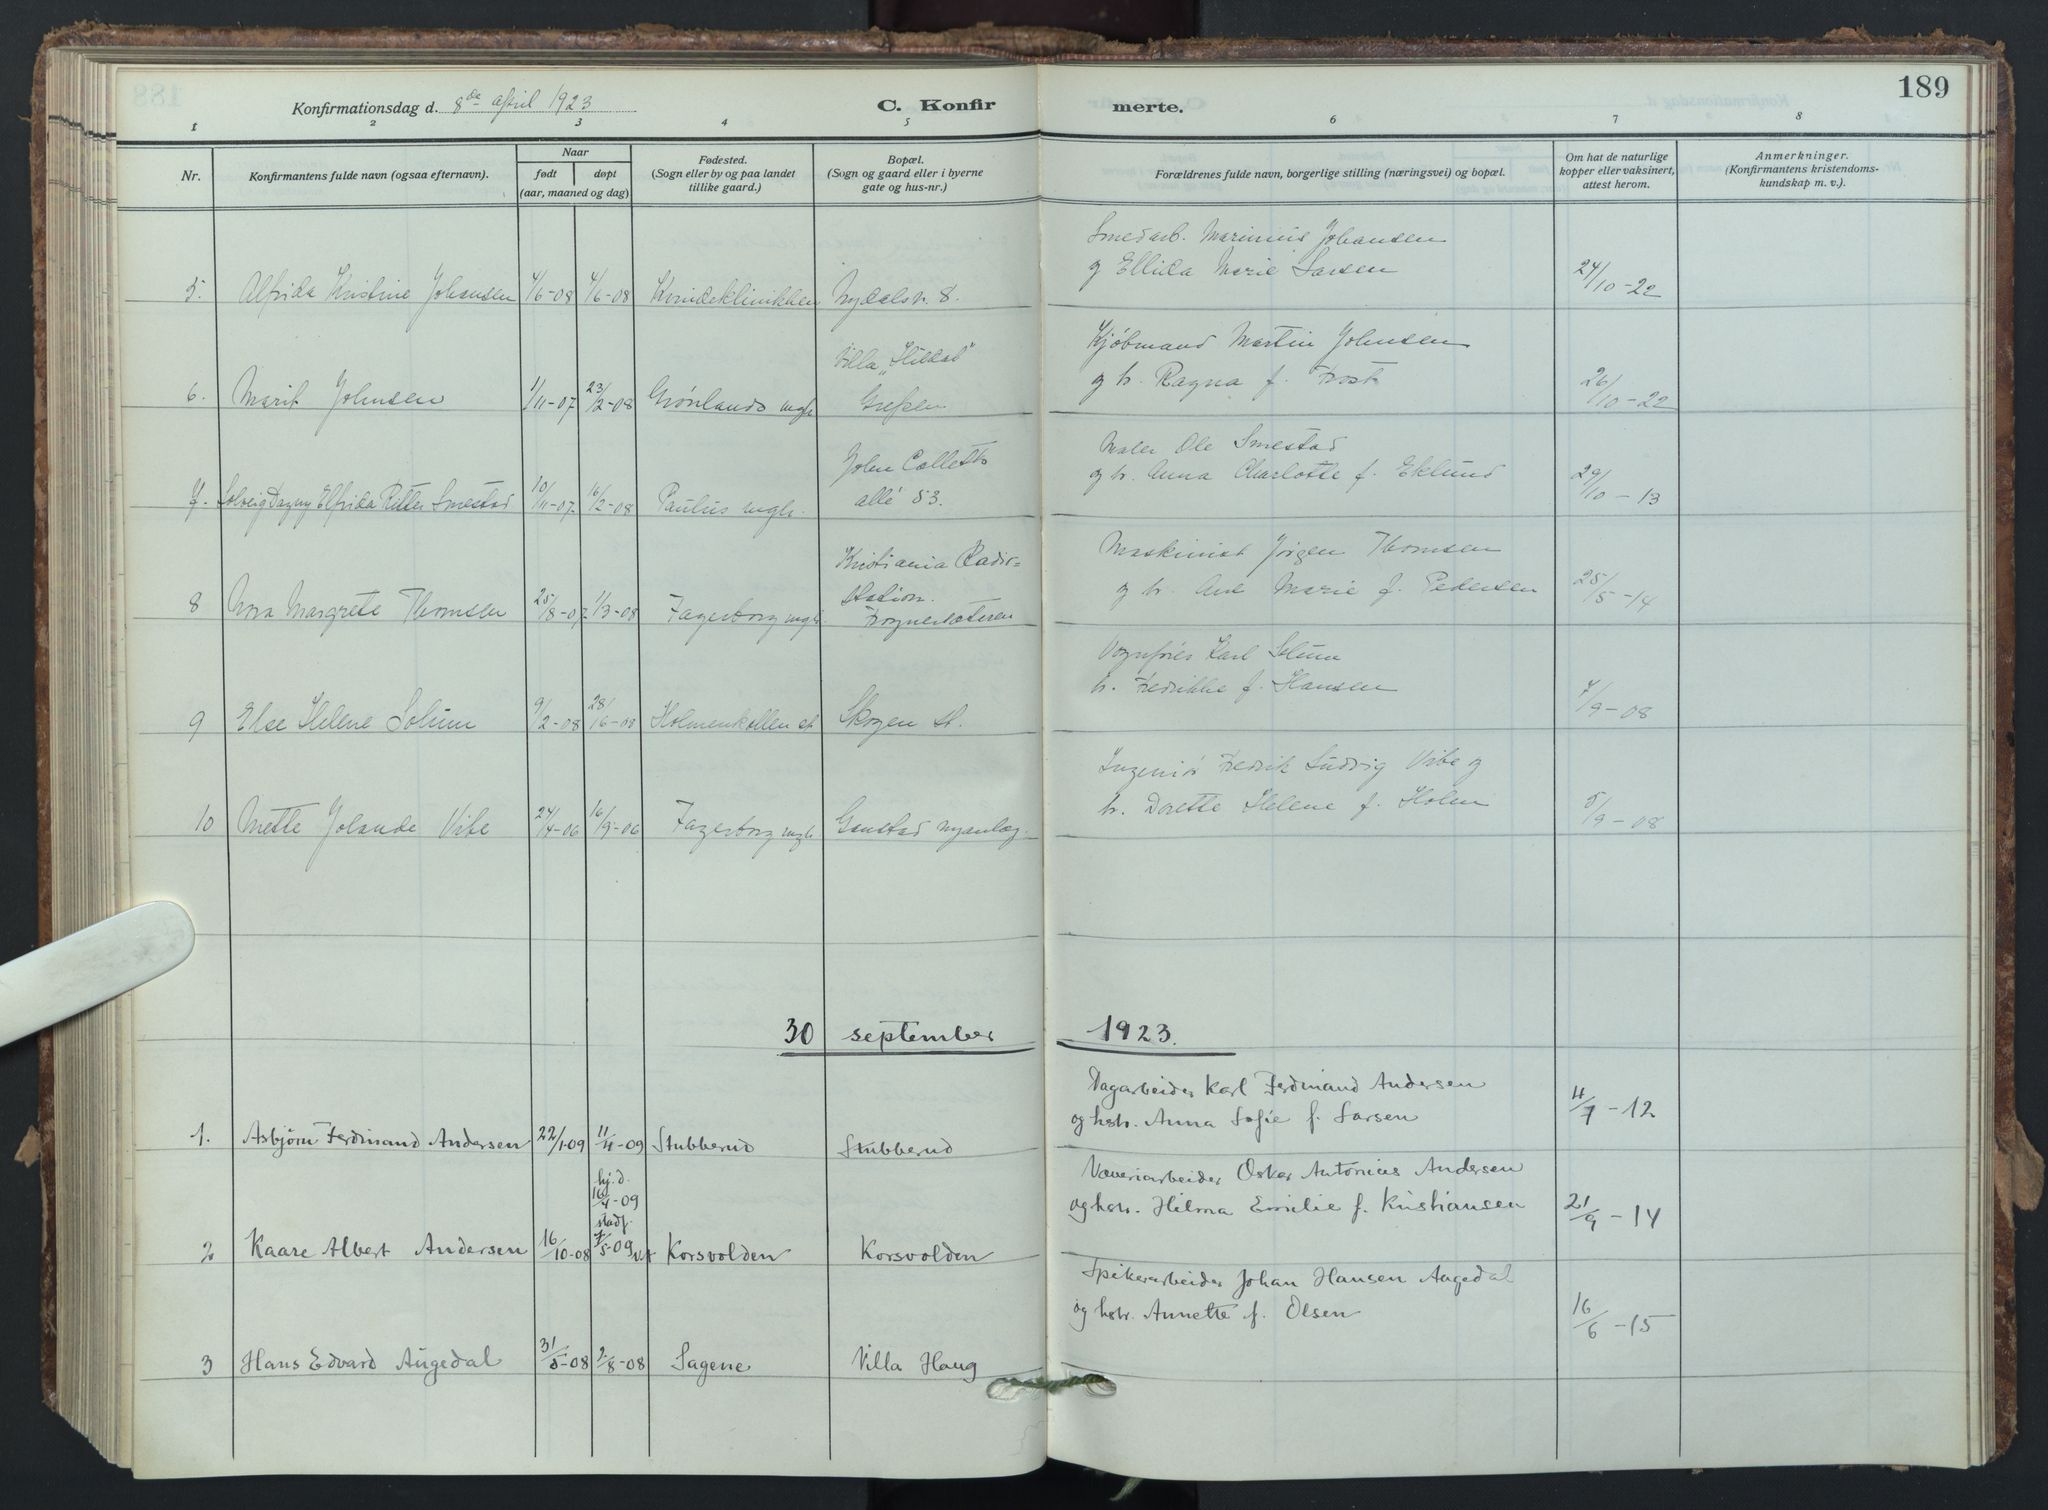 189
Konfirmationsdag d. 8de april 1923
C. Konfirmerte.
1 2 3 4 5 6 7 8
Nr.
Konfirmantens fulde navn (ogsaa efternavn).
Naar
født døpt
(aar, maaned og dag)
Fødested.
(Sogn eller by og paa landet
tillike gaard.)
Bopæl.
(Sogn og gaard eller i byerne
gate og hus-nr.)
Forældrenes fulde navn, borgerlige stilling (næringsvei) og bopæl.
Om hat de naturlige
kopper eller vaksinert,
attest herom.
Anmerkninger.
(Konfirmantens kristendoms-
kundskap m. v.).
Smedarb. Marinius Johansen
og Ellida Marie Larsen
5. Alfrida Kristine Johansen 4/6-08 4/6-08 Kvindeklinikken Nydalsv. 8. 24/10-22
Kjøbmand Martin Johnsen
og h. Ragna f. Frost
Villa
6. Marit Johnsen 1/11-07 23/2-08 Grønlands mgh. Grefsen 26/10-22
Maler Ole Smestad
og h. Anna Charlotte f. Eklund
John Colletts
allé 53.
7. Solveig Dagny Elfrida Ritter Smestad 10/11-07 16/2-08 Paulus mgh. 29/10-13
Maskinist Jørgen Thomsen
og h. Ane Marie f. Pedersen
Kristiania Radio-
station.
Frognersæteren
8 Nora Margrete Thomsen 25/8-07 1/3-08 Fagerborg mgh. 25/5-14
Vognfører Karl Solum
h. Fredrikke f. Hansen
9 Else Helene Solum 9/2-08 28/6-08 Holmenkollen st. Skogen st. 7/9-08
Ingeniør Fredrik Ludvig Vibe og
h. Dorette Helene f. Holm
10 Mette Jolande Vibe 24/4-06 16/9-06 Fagerborg mgh. Gaustad nyanlæg. 5/9-08
30 september 1923.
Dagarbeider Karl Ferdinand Andersen
og hstr. Anna Sofie f. Larsen
1. Asbjørn Ferdinand Andersen 22/1-09 11/4-09 Stubberud Stubberud 4/7-12
Væveriarbeider Oskar Antonius Andersen
og hstr. Hilma Emilie f. Kristiansen
hj.d.
16/4-09
stadf.
2 Kaare Albert Andersen 16/10-08 7/5-09 Korsvolden Korsvolden 21/9-14
Spikerarbeider Johan Hansen Augedal
og hstr. Annette f. Olsen
3 Hans Edvard Augedal 31/5-08 2/8-08 Sagene Villa Haug 16/6-15